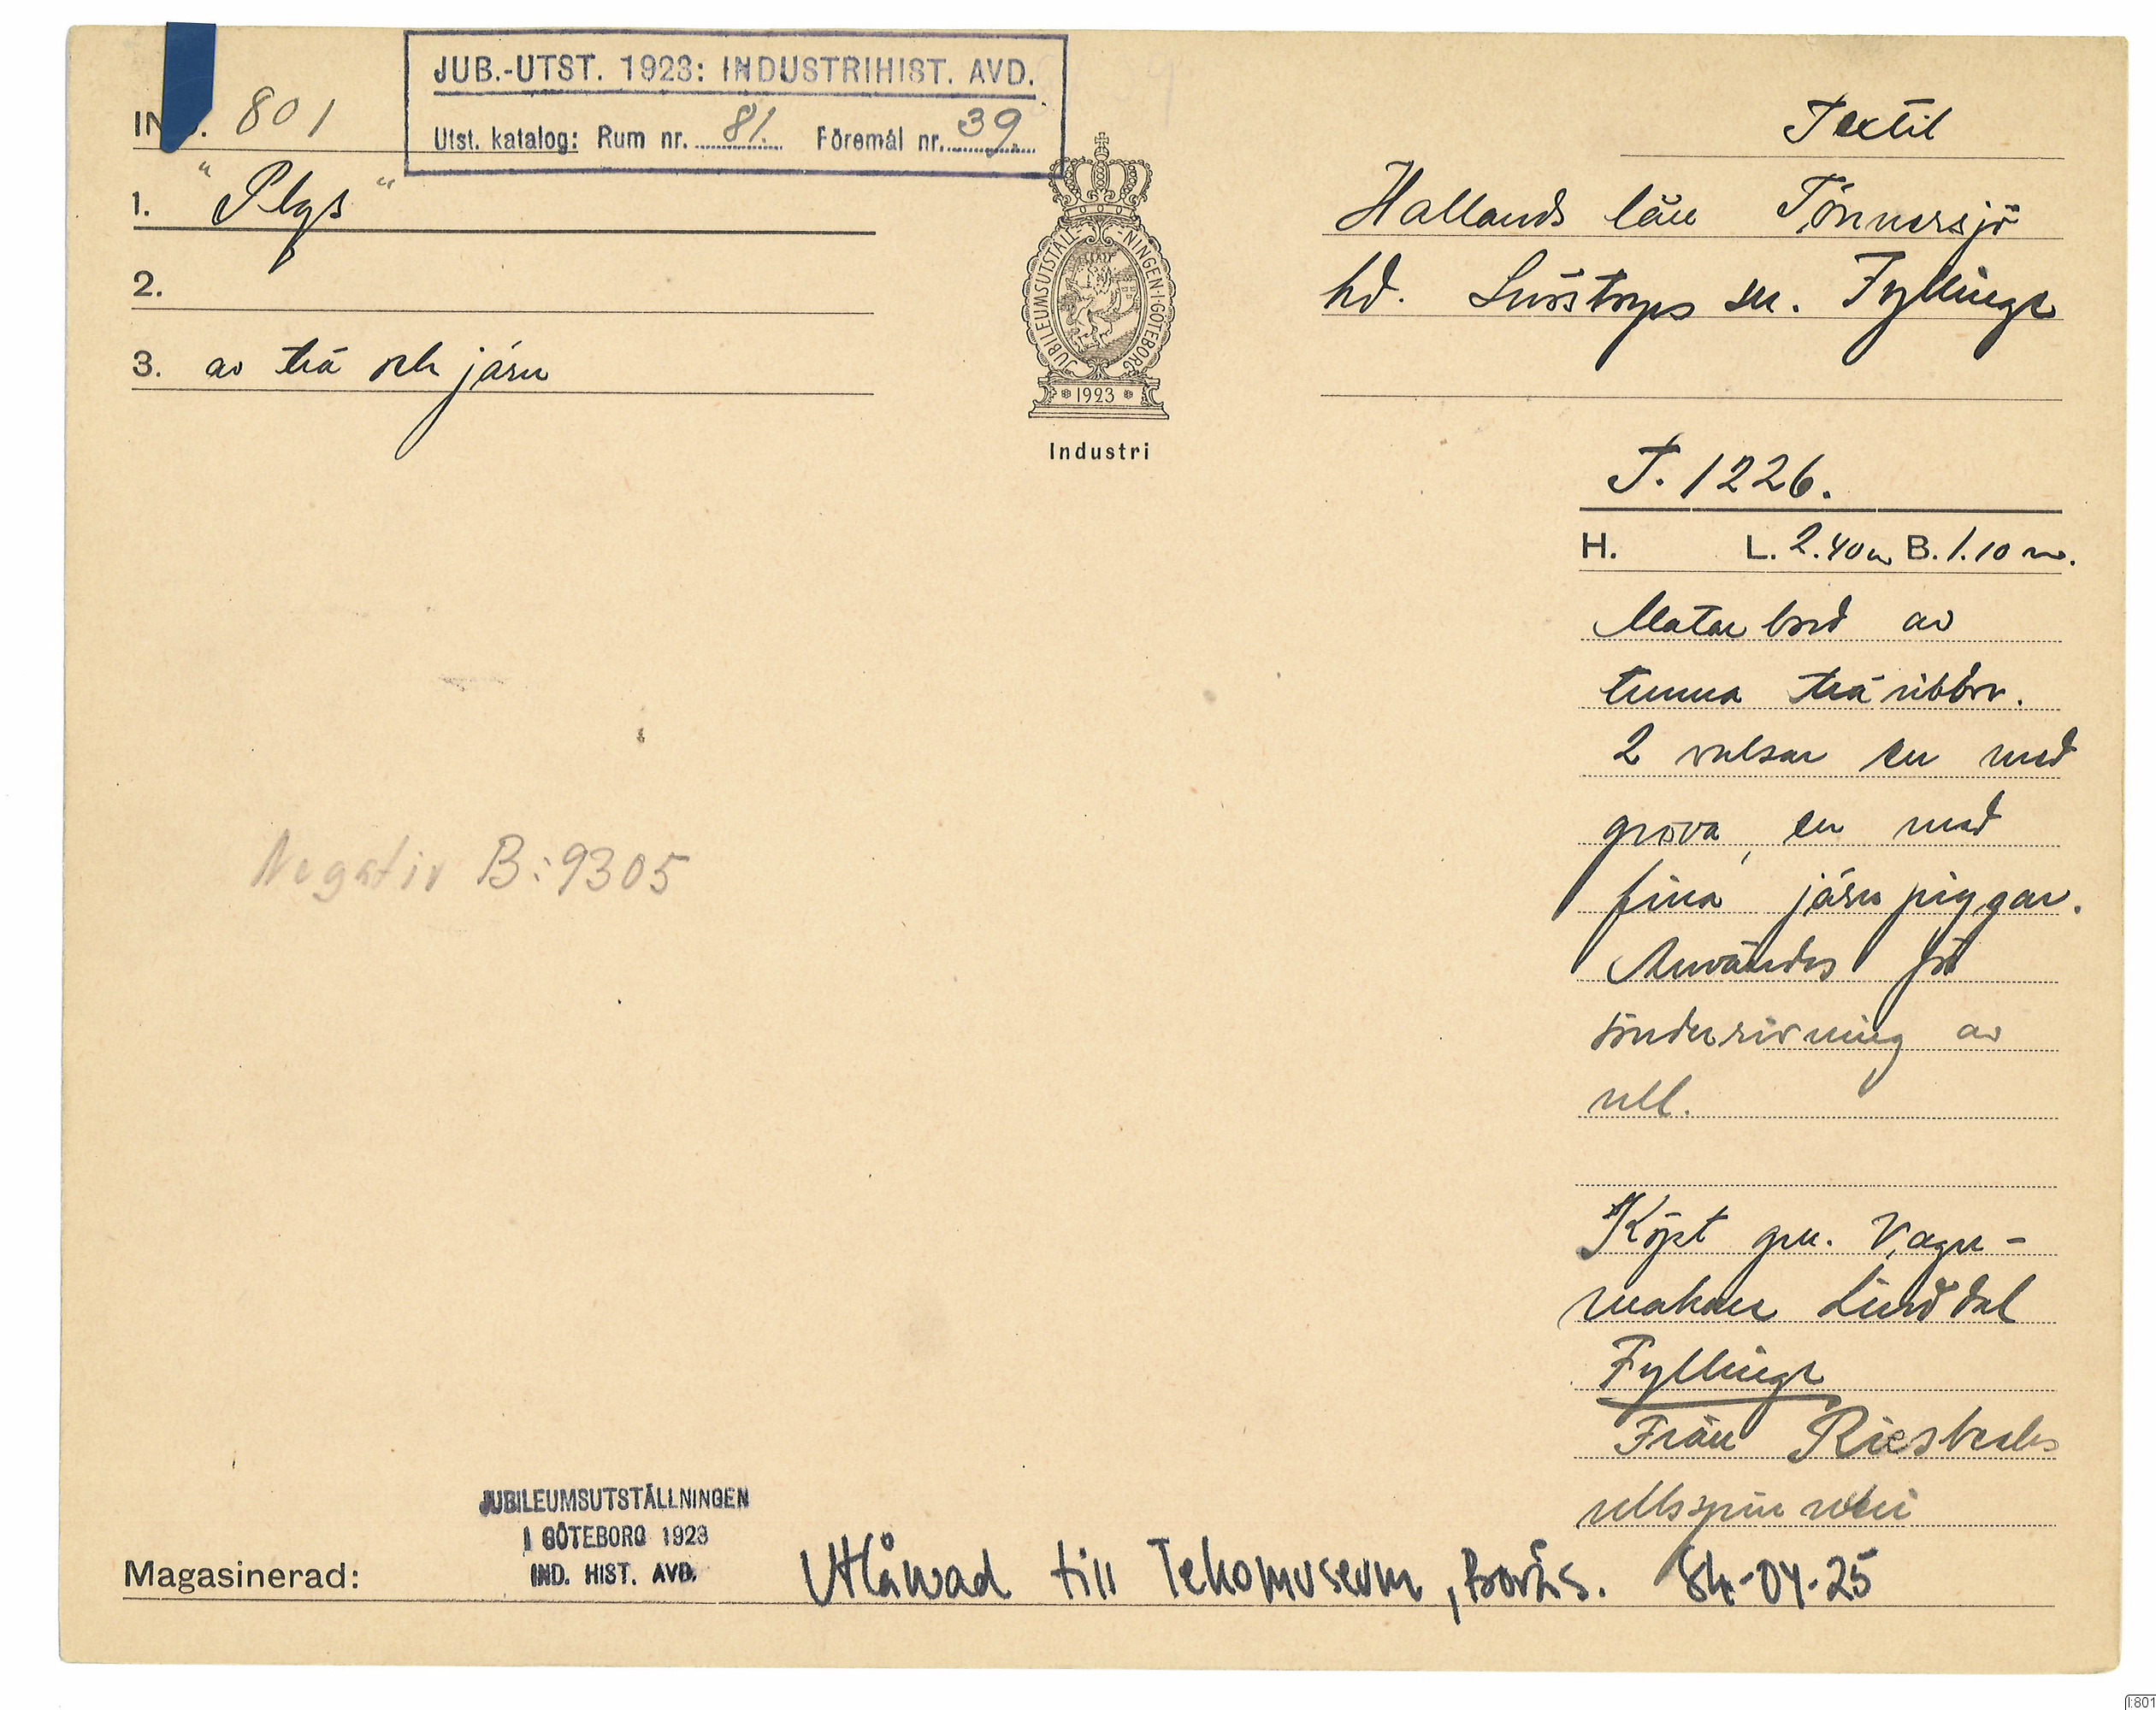 JUB.-UTST. 1923: INDUSTRIHIST. AVD.
Utst. katalog: Rum nr. 81. Föremål nr. 39.
IND. 801
1. "Plys"
2.
3. av trä och järn
JUBILEUMSUTSTÄLL-NINGEN·I·GÖTEBORG
1923
Industri
Textil
Hallands län Tönnersjö
hd. Snöstorps sn. Fyllinge
T. 1226.
H. L. 2.40 m B. 1.10 m.
Matarbord av
tunna träribbor.
2 valsar en med
grova, en med
fina järnpiggar.
Användes för
sönderrivning av
ull.
Köpt gm. Vagn-
makare Linddal
Fyllinge
Från Riesbecks
ullspinneri
Negativ B:9305
JUBILEUMSUTSTÄLLNINGEN
I GÖTEBORG 1923
IND. HIST. AVD.
Magasinerad:
Utlånad till Tekomuseum, Borås. 84-04-25
I:801